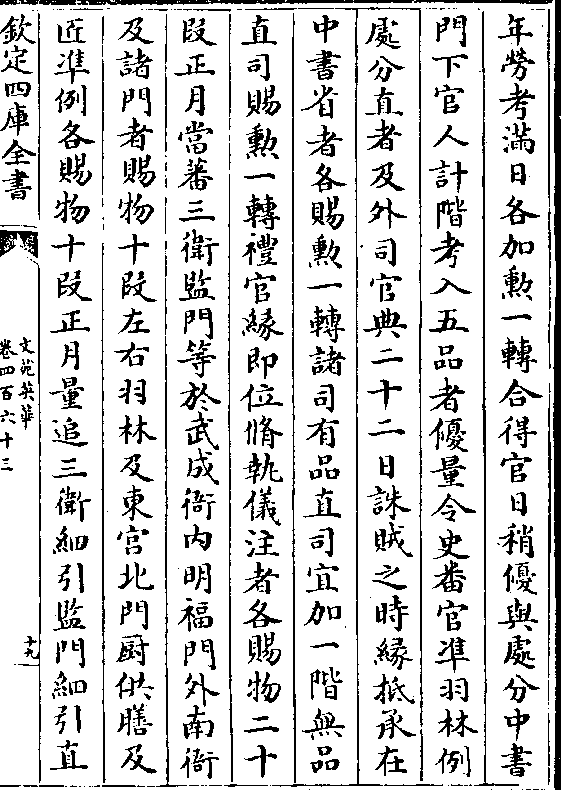 年勞考滿日各加勲一轉合得官日稍優與處分中書
門下官人計階考入五品者優量令史番官準羽林例
處分直者及外司官典二十二日誅賊之時緣祇承在
中書省者各賜勲一轉諸司有品直司宜加一階無品
直司賜勲一轉禮官緣即位脩執儀注者各賜物二十
段正月當蕃三衛監門等於武成衙内明福門外南衙
及諸門者賜物十段左右羽林及東宫北門厨供膳及
匠準例各賜物十段正月量追三衛細引監門細引直
欽定四庫全書
文苑英華
卷四百六十三
十九